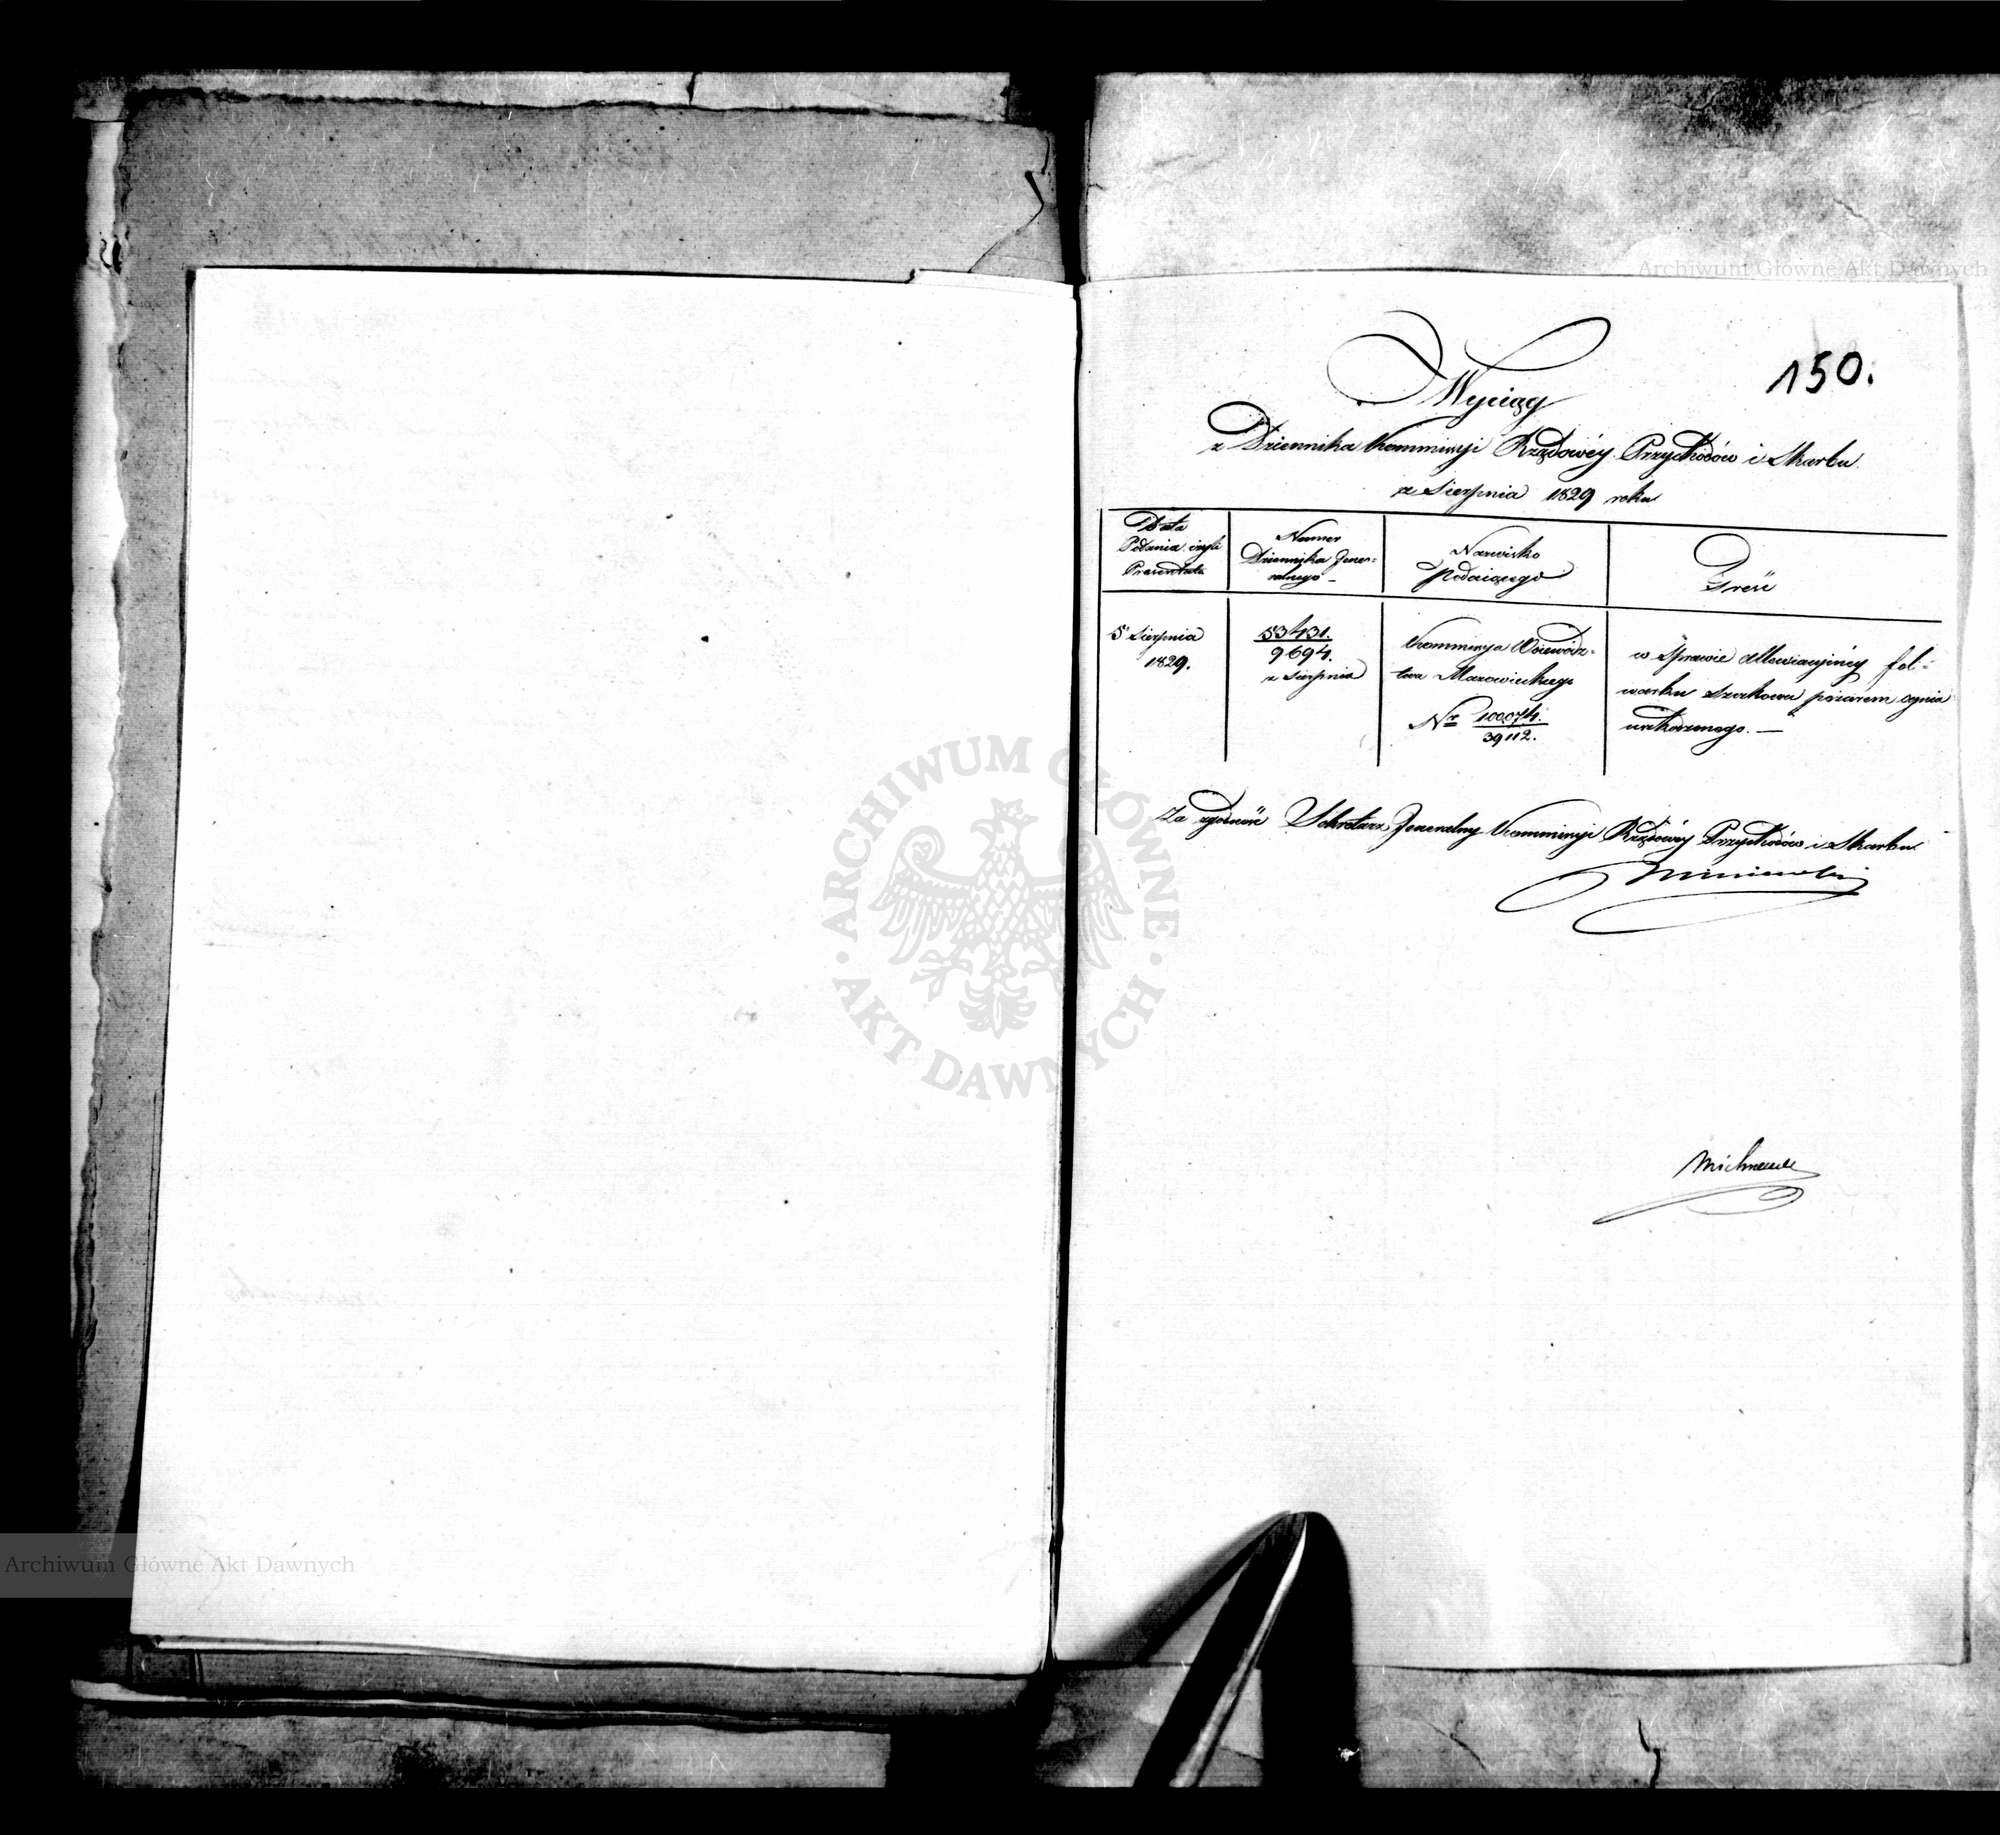 150.
Wyciąg
z Dziennika Kommissyi Rządowéy Przychodów i Skarbu
z Sierpnia 1829 roku
Data
Podania czyli
Prezentata
Numer
Dziennika Jene-
ralnego
Nazwisko
Podaiącego
Treść
5 Sierpnia
1829.
53431.
9694.
z Sierpnia
Kommissya Wojewódz-
twa Mazowieckiego
Nr 100,074.
39112.
w Sprawie allewiacyinéy fol-
warku Szakowa pożarem ognia
uszkodzonego. —
Za zgodność Sekretarz Jeneralny Kommissyi Rządowéy Przychodów i Skarbu
Archiwum Główne Akt Dawnych
ARCHIWUM GŁÓWNE
AKT DAWNYCH
Archiwum Główne Akt Dawnych